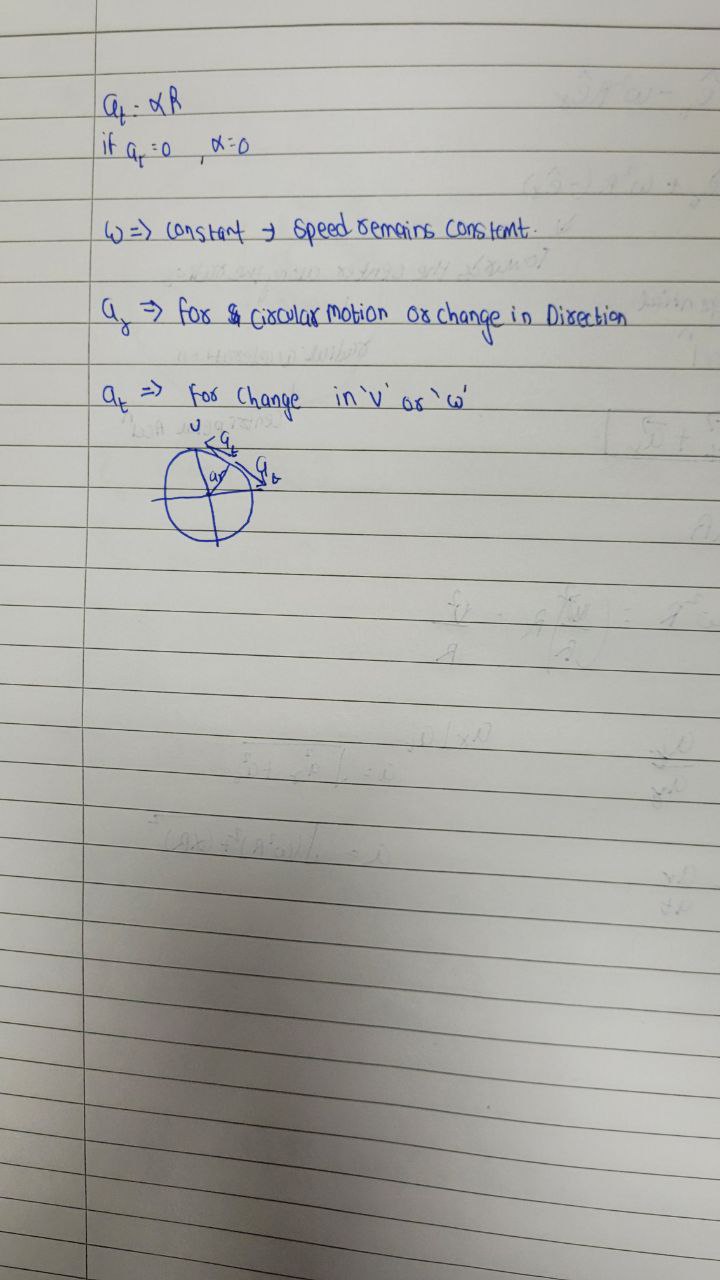 a_t = αR
if a_t = 0 , α=0
ω => constant → speed remains constant.
a_r => for circular motion or change in Direction
a_t => for change in 'v' or 'ω'
v
a_t
a_t
ar